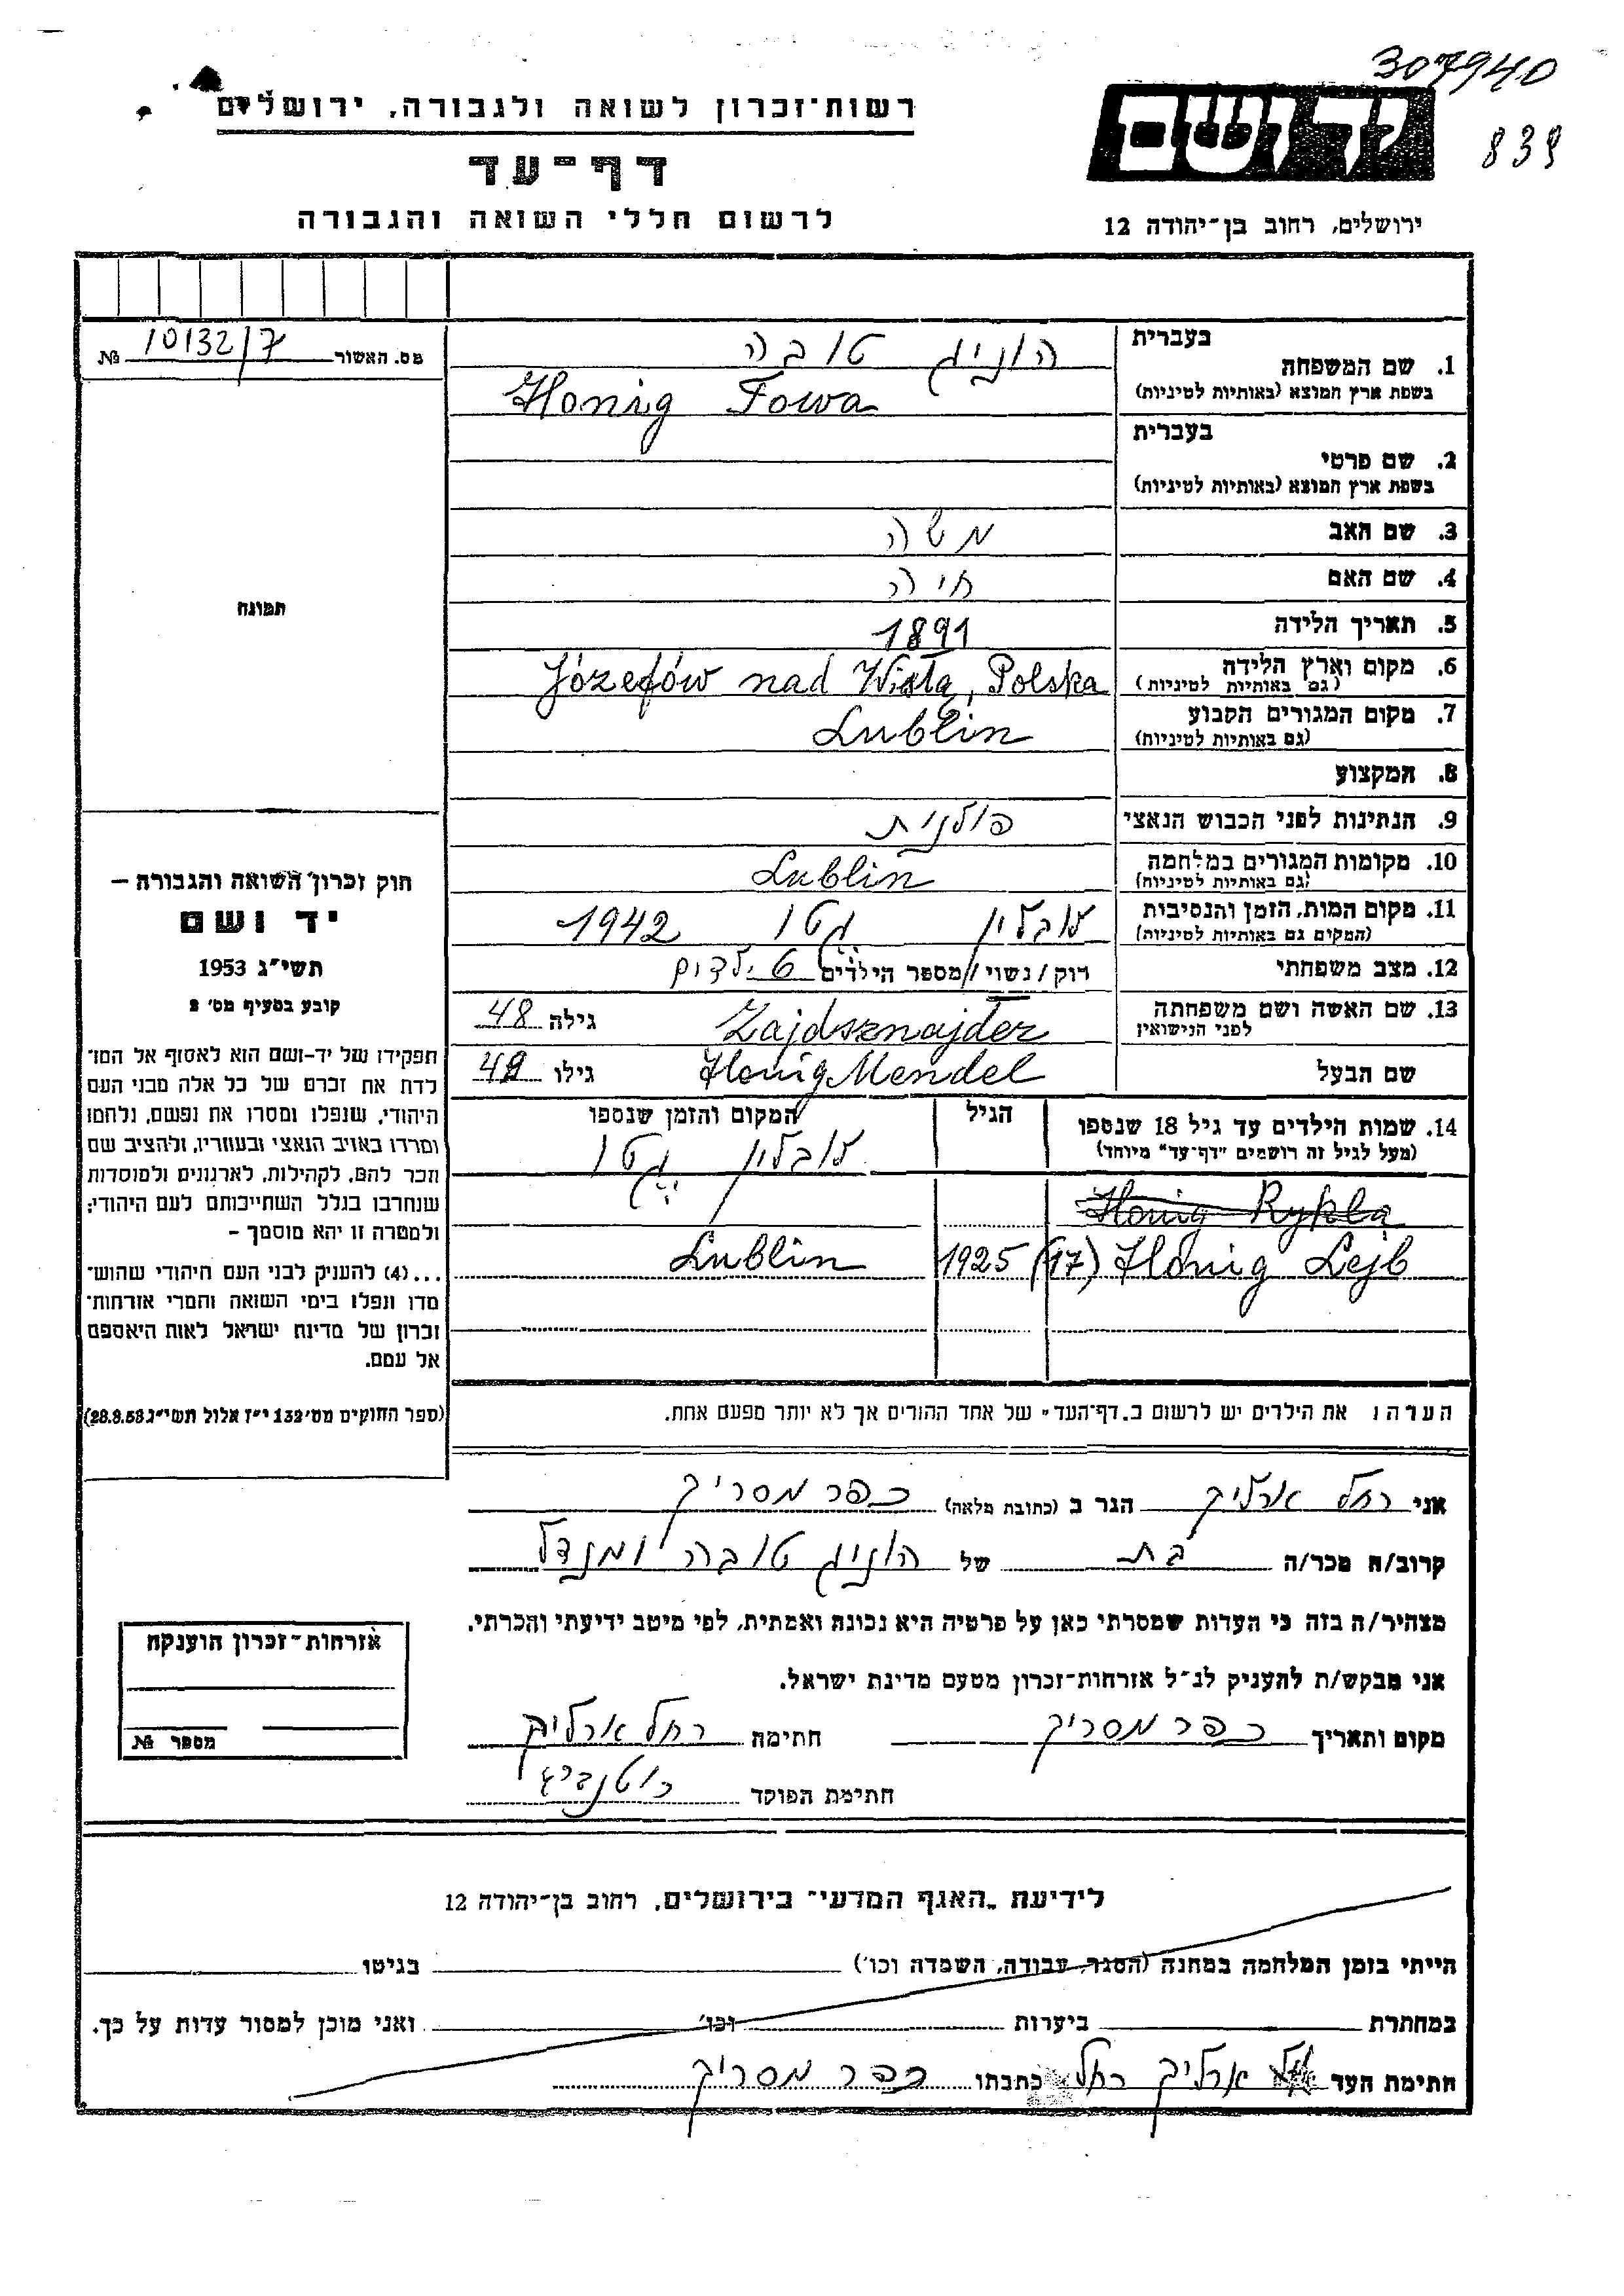 307940
839
רשות־זכרון לשואה ולגבורה, ירושלים
ידושם
דף־עד
לרשום חללי השואה והגבורה
ירושלים, רחוב בן־יהודה 12
מס. האשור 10132/7 №
בעברית
1. שם המשפחה הוניג טובה
בשפת ארץ המוצא (באותיות לטיניות) Honig Towa
בעברית
2. שם פרטי
בשפת ארץ המוצא (באותיות לטיניות)
3. שם האב משה
4. שם האם חיה
5. תאריך הלידה 1891
6. מקום וארץ הלידה Józefów nad Wisłą, Polska
(גם באותיות לטיניות)
7. מקום המגורים הקבוע Lublin
(גם באותיות לטיניות)
8. המקצוע
9. הנתינות לפני הכבוש הנאצי פולנית
10. מקומות המגורים במלחמה Lublin
(גם באותיות לטיניות)
11. מקום המות, הזמן והנסיבות לובלין גטו 1942
(המקום גם באותיות לטיניות)
12. מצב משפחתי רוק/נשוי/מספר הילדים 6 ילדים
13. שם האשה ושם משפחתה Zajdsznajder גילה 48
לפני הנישואין
שם הבעל Honig Mendel גילו 49
14. שמות הילדים עד גיל 18 שנספו הגיל המקום והזמן שנספו
(מעל לגיל זה רושמים "דף־עד" מיוחד) לובלין גטו
Honig Rykla
Honig Lejb 1925 (17) Lublin
הערה: את הילדים יש לרשום ב„דף־העד" של אחד ההורים אך לא יותר מפעם אחת.
תמונה
חוק זכרון השואה והגבורה –
יד ושם
תשי"ג 1953
קובע בסעיף מס' 2
תפקידו של יד-ושם הוא לאסוף אל המו־
לדת את זכרם של כל אלה מבני העם
היהודי, שנפלו ומסרו את נפשם, נלחמו
ומרדו באויב הנאצי ובעוזריו, ולהציב שם
וזכר להם, לקהילות, לארגונים ולמוסדות
שנחרבו בגלל השתייכותם לעם היהודי;
ולמטרה זו יהא מוסמך –
...(4) להעניק לבני העם היהודי שהוש־
מדו ונפלו בימי השואה והמרי אזרחות־
זכרון של מדינת ישראל לאות היאספם
אל עמם.
(ספר החוקים מס' 132 י"ז אלול תשי"ג 28.8.53)
אני רחל ארליך הגר ב (כתובת מלאה) כפר מסריק
קרוב/ה מכר/ה בת של הוניג טובה ומנדל
מצהיר/ה בזה כי העדות שמסרתי כאן על פרטיה היא נכונה ואמתית, לפי מיטב ידיעתי והכרתי.
אני מבקש/ת להעניק לנ"ל אזרחות־זכרון מטעם מדינת ישראל.
מקום ותאריך כפר מסריק חתימה רחל ארליך
חתימת הפוקד
אזרחות־זכרון הוענקה
מספר №
לידיעת „האגף המדעי" בירושלים, רחוב בן־יהודה 12
הייתי בזמן המלחמה במחנה (הסגר, עבודה, השמדה וכו') בגיטו
במחתרת ביערות וכו' ואני מוכן למסור עדות על כך.
חתימת העד ארליך רחל כתבתו כפר מסריק